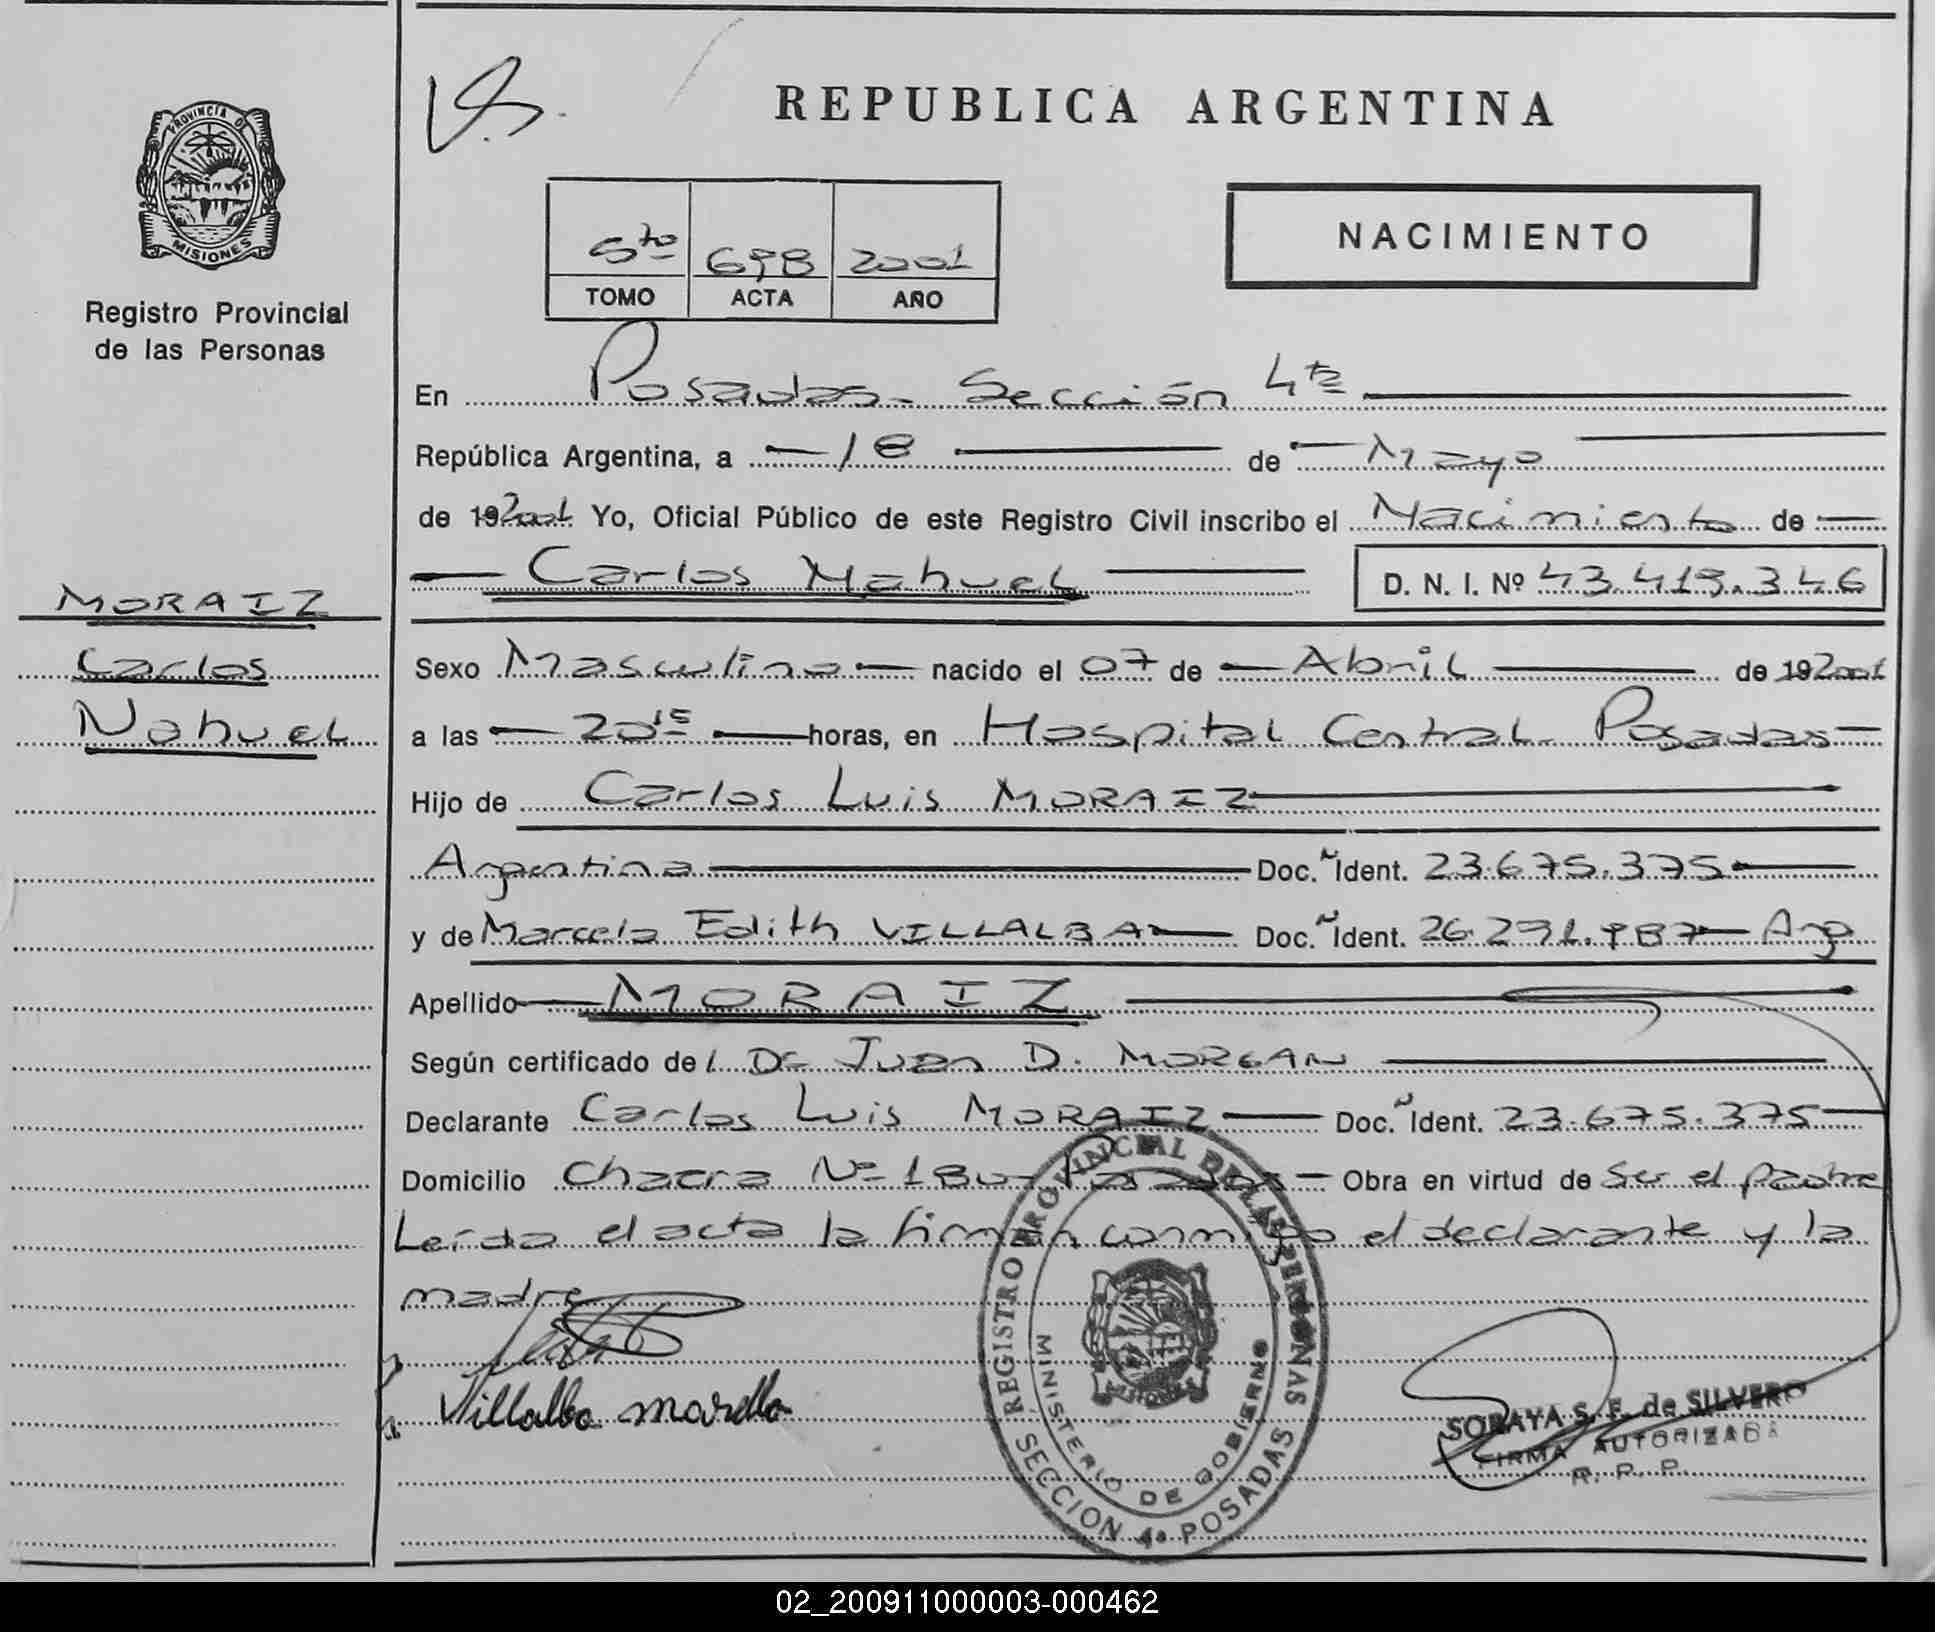 REPUBLICA ARGENTINA
PROVINCIA DE
MISIONES
Registro Provincial
de las Personas
5to 698 2001
TOMO ACTA AÑO
NACIMIENTO
En Posadas - Sección 4ta
República Argentina, a 18 de Mayo
de 192001 Yo, Oficial Público de este Registro Civil inscribo el Nacimiento de
Carlos Nahuel D. N. I. Nº 43.419.346
MORAIZ
Carlos
Nahuel
Sexo Masculino nacido el 07 de Abril de 192001
a las 20 15 horas, en Hospital Central - Posadas
Hijo de Carlos Luis MORAIZ
Argentina Doc. Ident. 23.675.375
y de Marcela Edith VILLALBA Doc. Ident. 26.291.987 Arg
Apellido MORAIZ
Según certificado de l Dr Juan D. MORGAN
Declarante Carlos Luis MORAIZ Doc. Ident. 23.675.375
Domicilio Chacra Nº 180 - Posadas Obra en virtud de ser el padre
Leída el acta la firman conmigo el declarante y la
madre
Villalba Marcela
REGISTRO PROVINCIAL DE LAS PERSONAS
MINISTERIO DE GOBIERNO
SECCION 4a POSADAS
SORAYA S. F. de SILVERO
FIRMA AUTORIZADA
R. P. P.
02_200911000003-000462